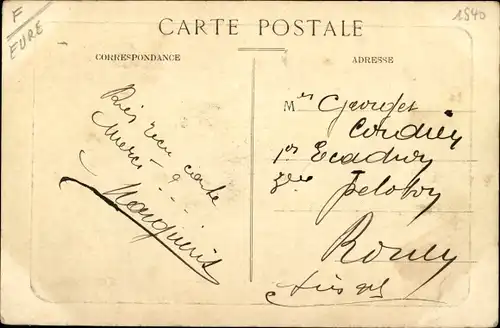 F
EURE
1540
CARTE POSTALE
CORRESPONDANCE
ADRESSE
reçu carte
Merci
M Georges
Cordier
1er Escadron
3ème peloton
Rouen